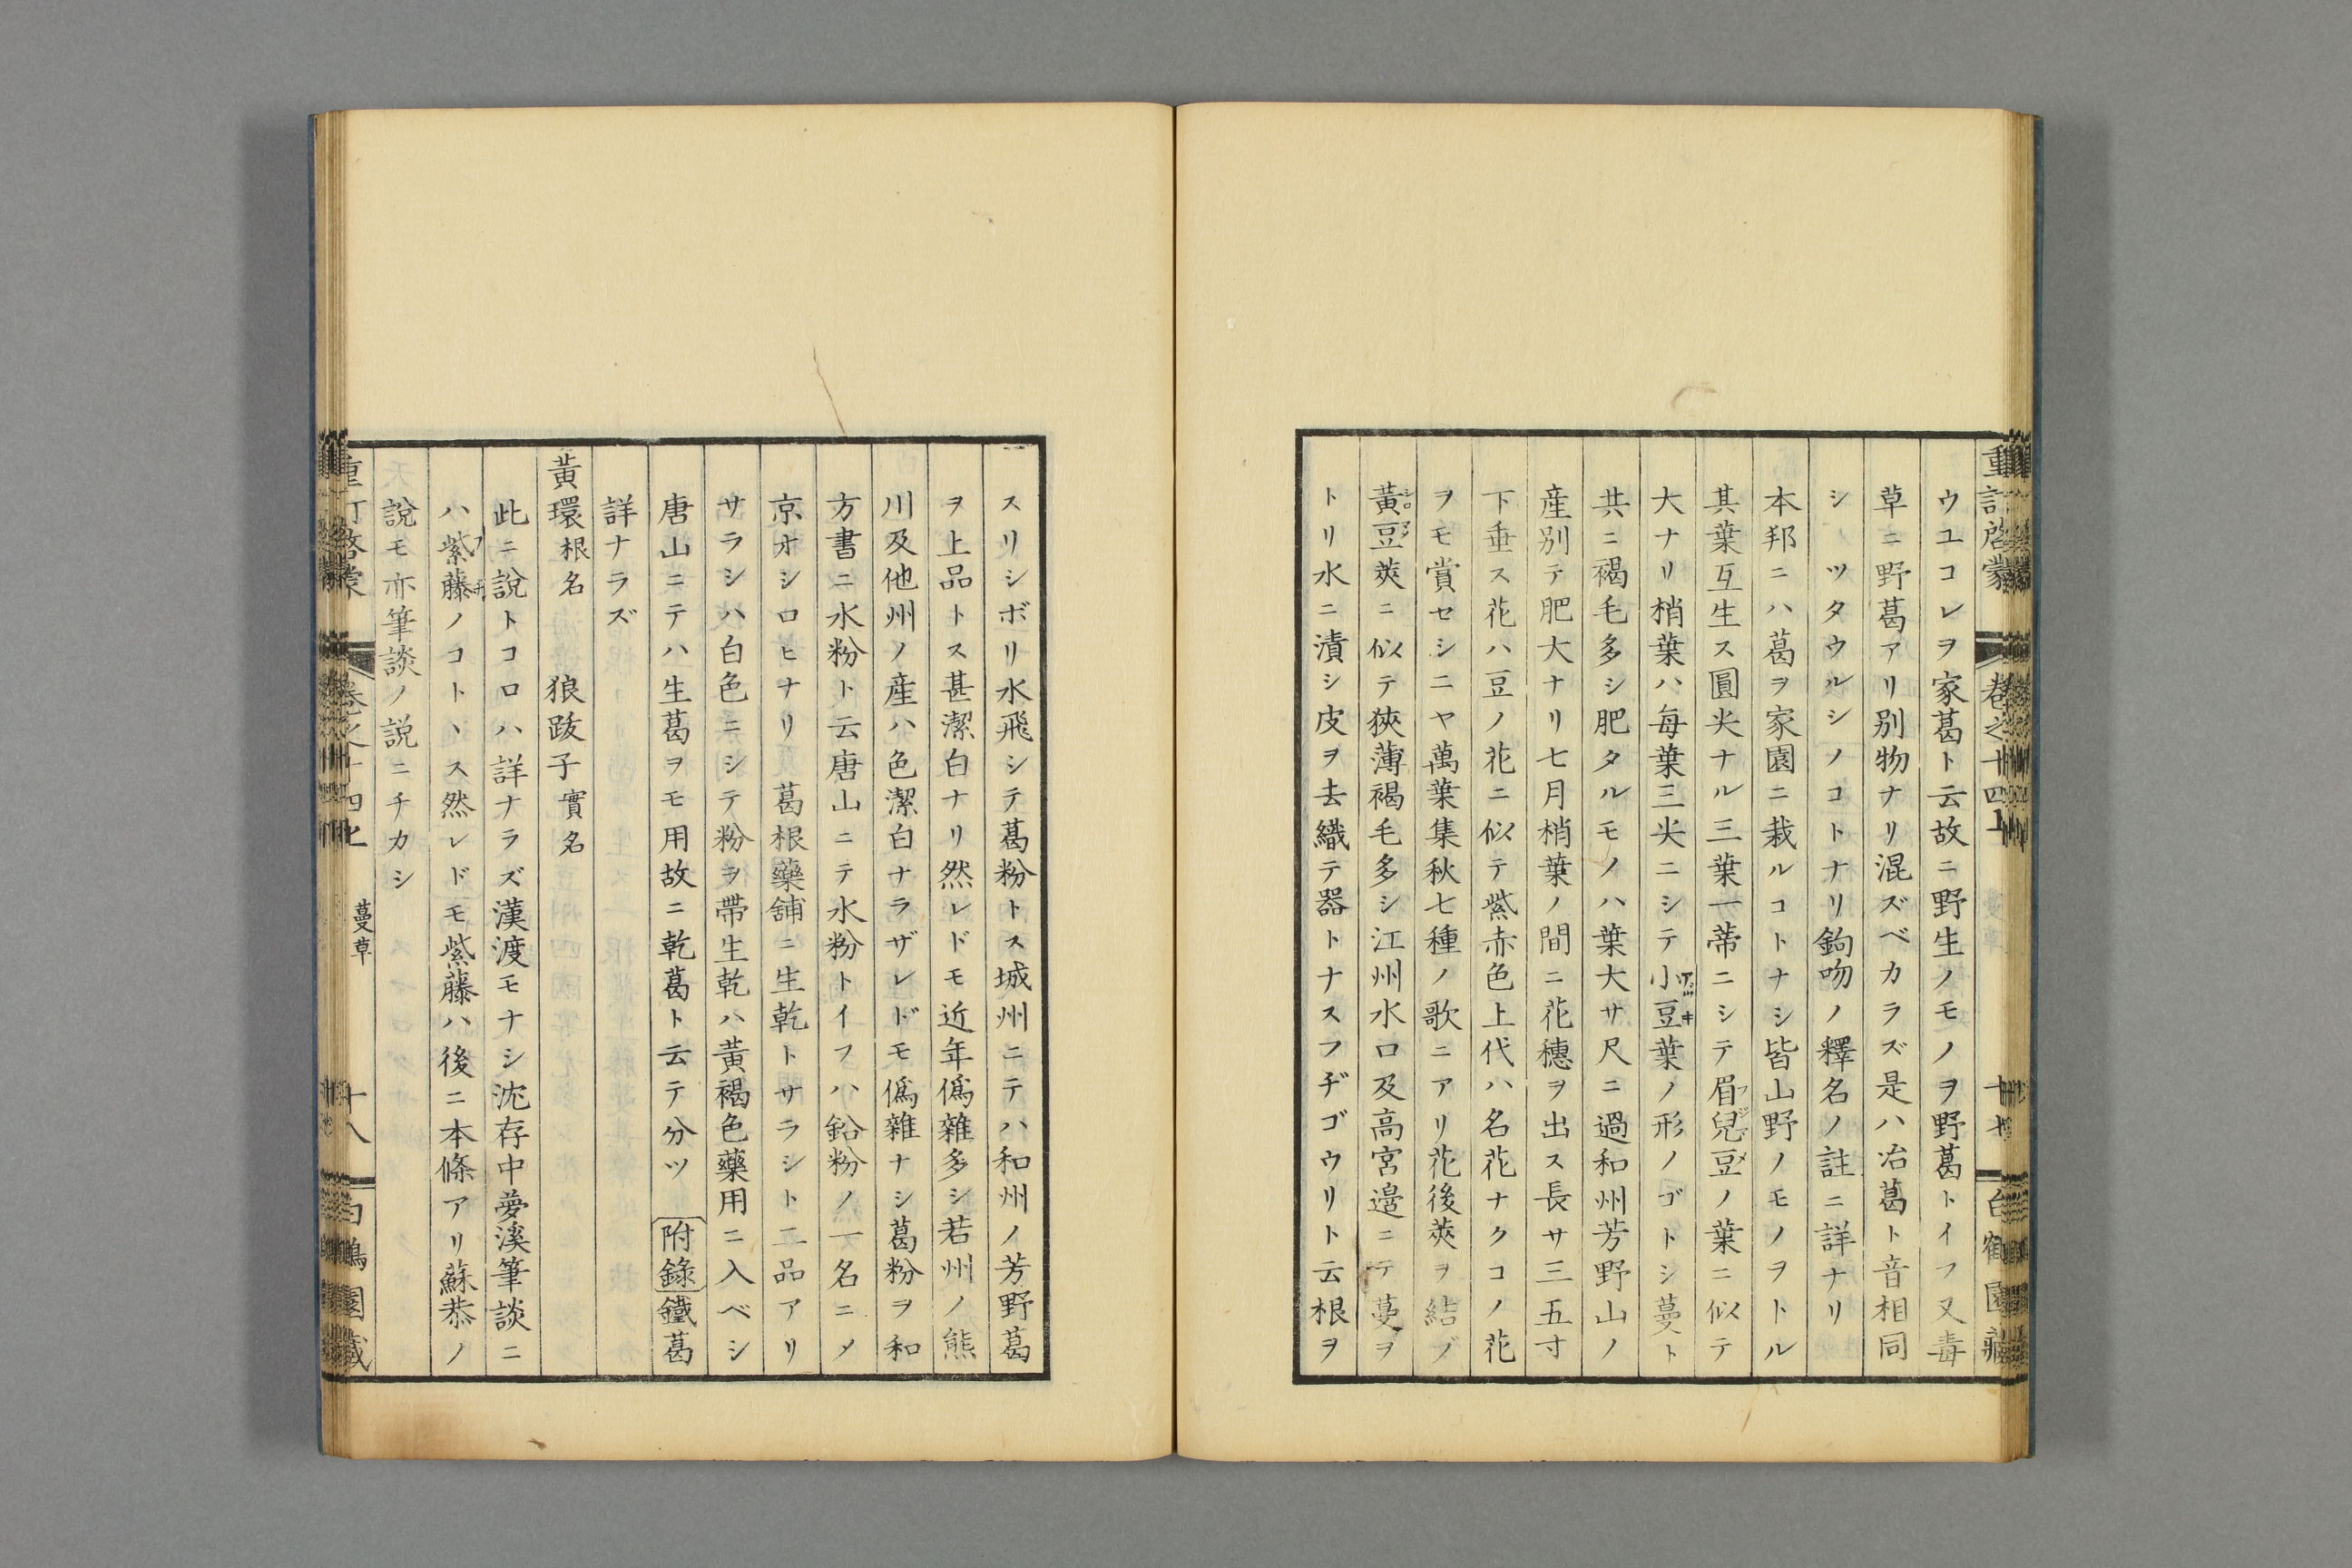 重訂啓蒙 卷之十四上 十七 白鶴園藏
ウユコレヲ家葛ト云故ニ野生ノモノヲ野葛トイフ又毒
草ニ野葛アリ別物ナリ混ズベカラズ是ハ冶葛ト音相同
シノツタウルシノコトナリ鉤吻ノ釋名ノ註ニ詳ナリ
本邦ニハ葛ヲ家園ニ栽ルコトナシ皆山野ノモノヲトル
其葉互生ス圓尖ナル三葉一蒂ニシテ眉兒豆ノ葉ニ似テ
大ナリ梢葉ハ每葉三尖ニシテ小豆葉ノ形ノゴトシ蔓ト
共ニ褐毛多シ肥タルモノハ葉大サ尺ニ過和州芳野山ノ
産別テ肥大ナリ七月梢葉ノ間ニ花穗ヲ出ス長サ三五寸
下垂ス花ハ豆ノ花ニ似テ紫赤色上代ハ名花ナクコノ花
ヲモ賞セシニヤ萬葉集秋七種ノ歌ニアリ花後莢ヲ結ブ
黃豆莢ニ似テ狹薄褐毛多シ江州水口及高宮邊ニテ蔓ヲ
トリ水ニ漬シ皮ヲ去織テ器トナスフヂゴウリト云根ヲ
スリシボリ水飛シテ葛粉トス城州ニテハ和州ノ芳野葛
ヲ上品トス甚潔白ナリ然レドモ近年僞雜多シ若州ノ熊
川及他州ノ産ハ色潔白ナラザレドモ僞雜ナシ葛粉ヲ和
方書ニ水粉ト云唐山ニテ水粉トイフハ鉛粉ノ一名ニメ
京オシロヒナリ 葛根藥舖ニ生乾トサラシト二品アリ
サラシハ白色ニシテ粉ヲ帶生乾ハ黃褐色藥用ニ入ベシ
唐山ニテハ生葛ヲモ用故ニ乾葛ト云テ分ツ 附錄 鐵葛
詳ナラズ
黃環 根名 狼跋子 實名
此ニ說トコロハ詳ナラズ漢渡モナシ沈存中夢溪筆談ニ
ハ紫藤ノコトヽス然レドモ紫藤ハ後ニ本條アリ蘇恭ノ
說モ亦筆談ノ說ニチカシ
重訂啓蒙 卷之十四上 蔓草 十八 白鶴園藏